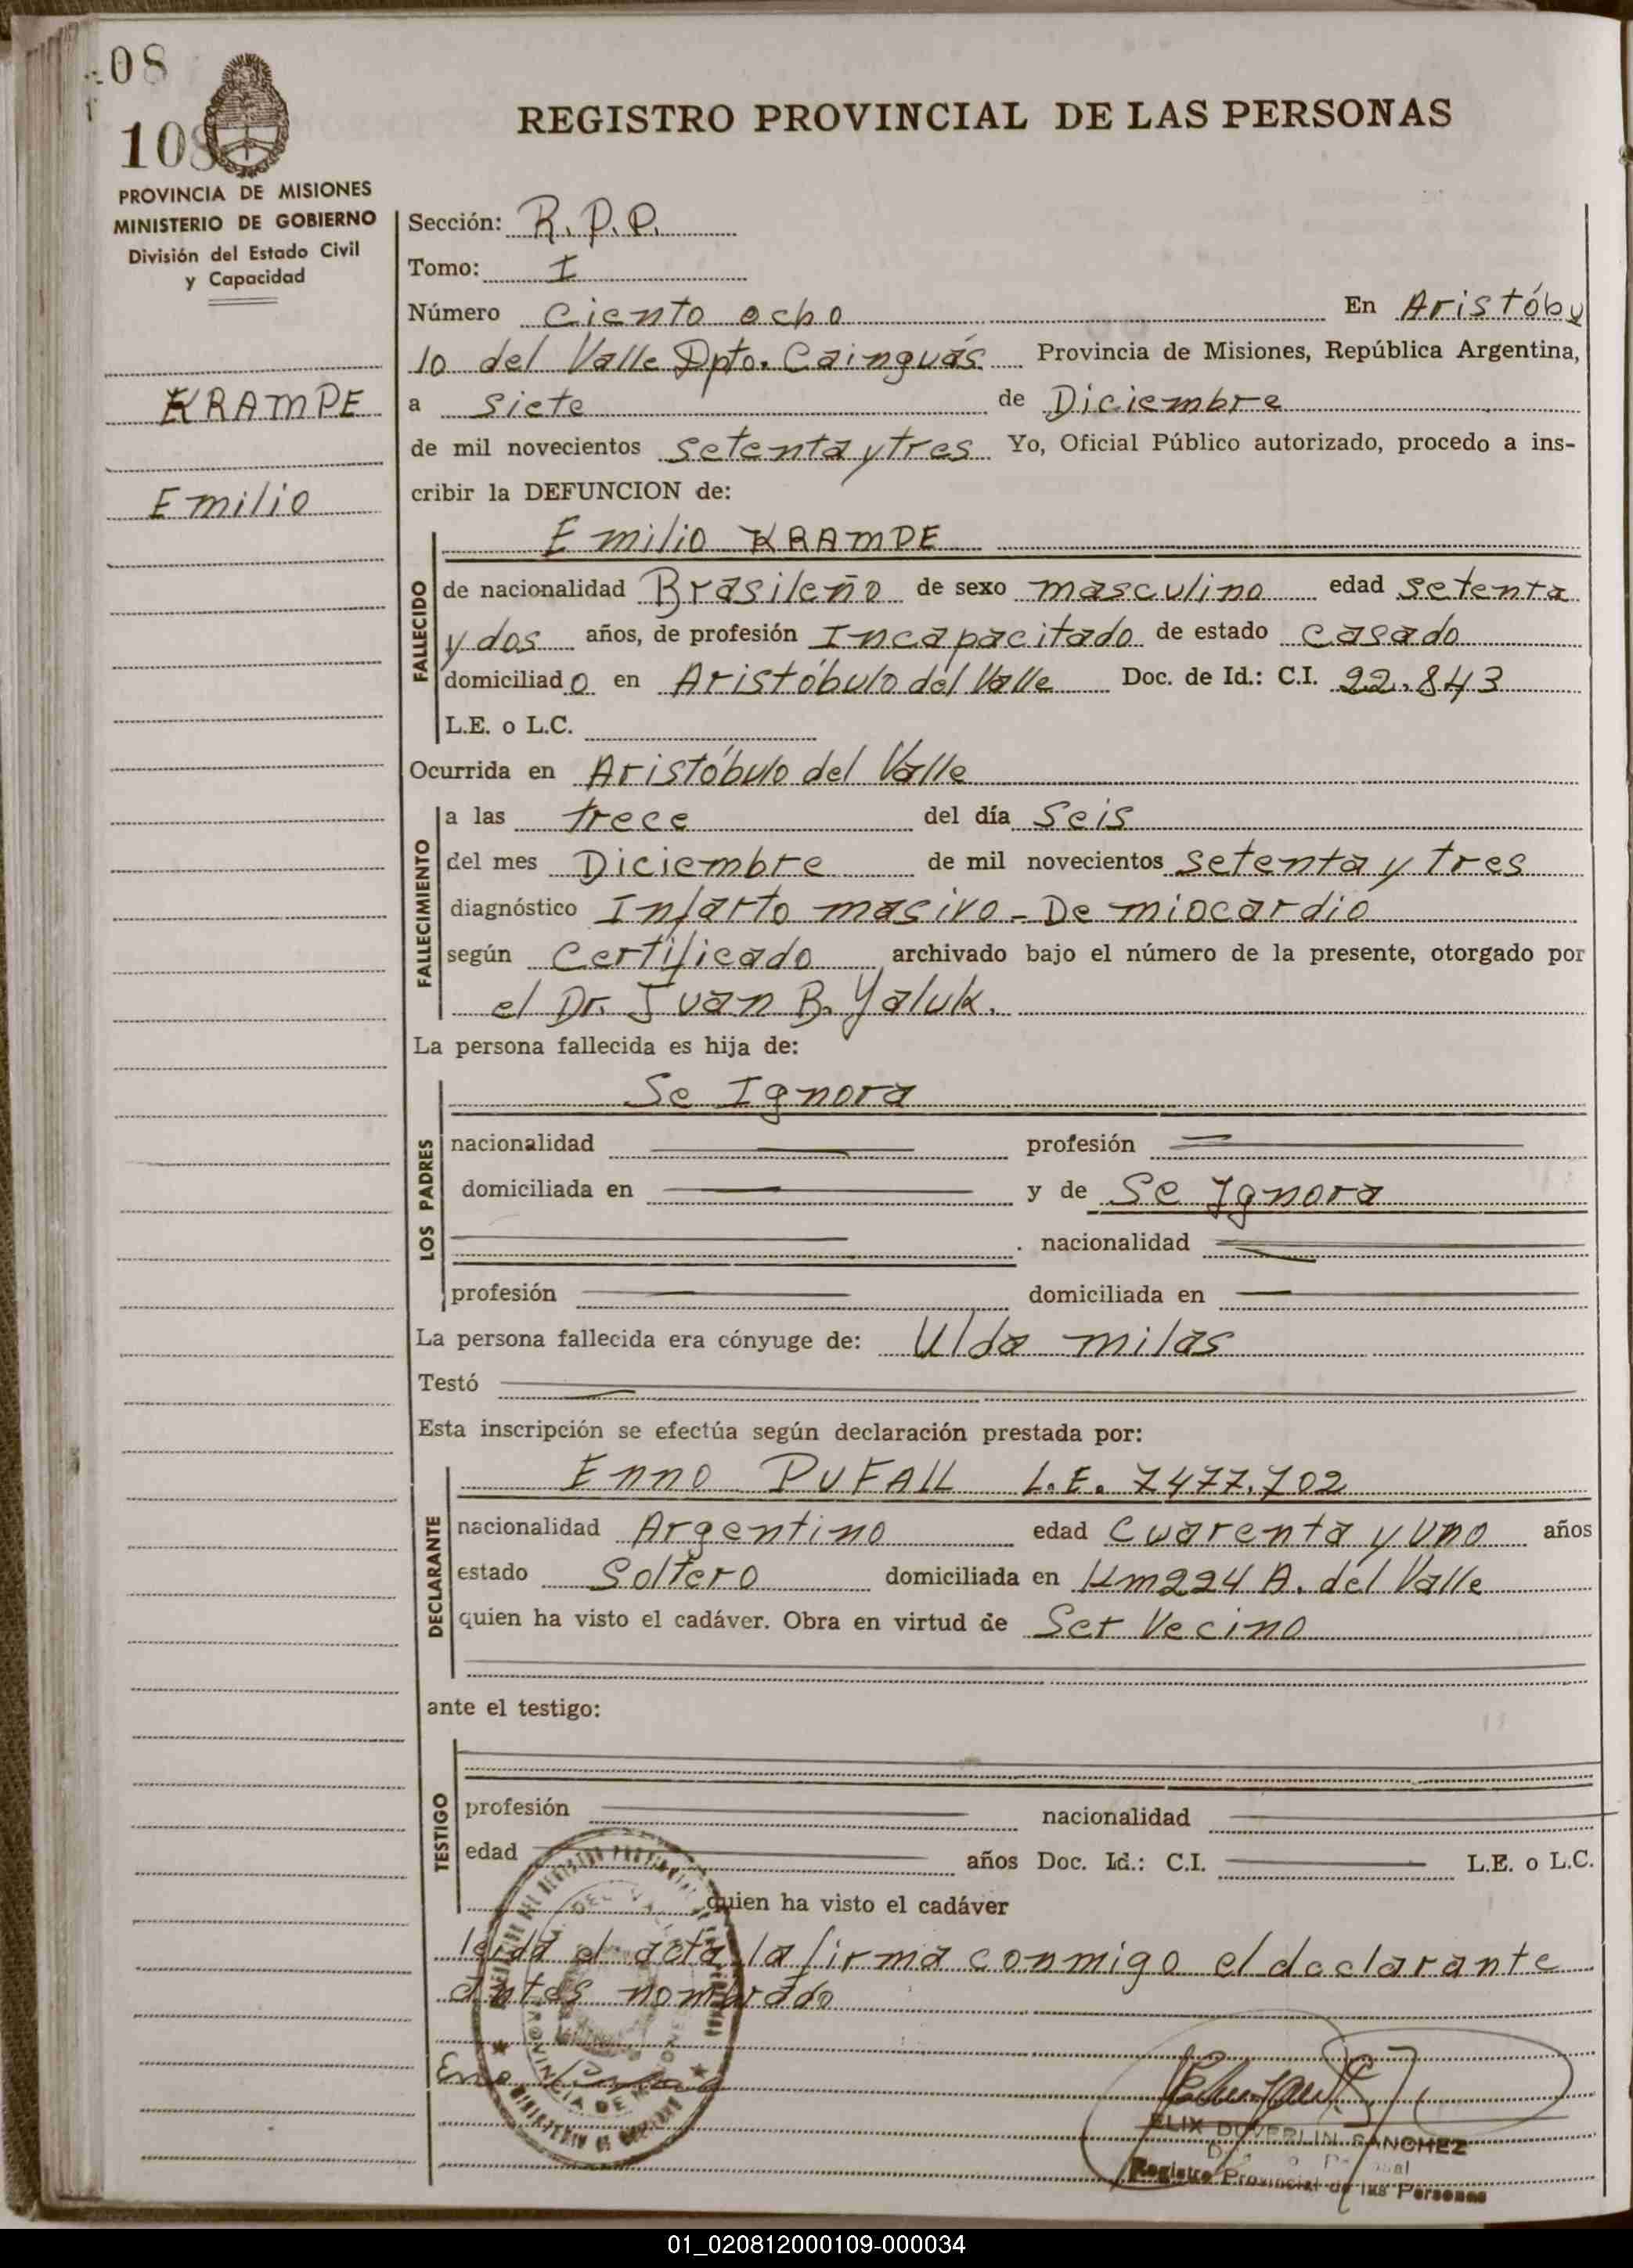 08
108
PROVINCIA DE MISIONES
MINISTERIO DE GOBIERNO
División del Estado Civil
y Capacidad
KRAMPE
Emilio
REGISTRO PROVINCIAL DE LAS PERSONAS
Sección: R.P.P.
Tomo: I
Número Ciento ocho En Aristóbu
lo del Valle Dpto. Cainguás Provincia de Misiones, República Argentina,
a Siete de Diciembre
de mil novecientos setenta y tres Yo, Oficial Público autorizado, procedo a ins-
cribir la DEFUNCION de:
Emilio KRAMPE
FALLECIDO
de nacionalidad Brasileño de sexo masculino edad setenta
y dos años, de profesión Incapacitado de estado casado
domiciliado en Aristóbulo del Valle Doc. de Id.: C.I. 22.843
L.E. o L.C.
Ocurrida en Aristóbulo del Valle
FALLECIMIENTO
a las trece del día Seis
del mes Diciembre de mil novecientos setenta y tres
diagnóstico Infarto masivo - De miocardio
según Certificado archivado bajo el número de la presente, otorgado por
el Dr. Juan B. Yaluk.
La persona fallecida es hija de:
LOS PADRES
Se Ignora
nacionalidad profesión
domiciliada en y de Se Ignora
. nacionalidad
profesión domiciliada en
La persona fallecida era cónyuge de: Ulda milas
Testó
Esta inscripción se efectúa según declaración prestada por:
DECLARANTE
Enno PUFALL L.E. 7477.702
nacionalidad Argentino edad Cuarenta y uno años
estado Soltero domiciliada en Km 224 A. del Valle
quien ha visto el cadáver. Obra en virtud de Ser Vecino
ante el testigo:
TESTIGO
profesión nacionalidad
edad años Doc. Id.: C.I. L.E. o L.C.
quien ha visto el cadáver
leída el acta la firma conmigo el declarante
antes nombrado
Enno
ELIX DUVERLIN SANCHEZ
Registro Provincial de las Personas
01_020812000109-000034